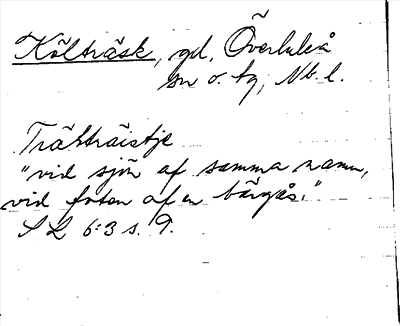 Költräsk, gd, Överluleå
sn o. tg, Nb. l.
"vid sjön af samma namn,
vid foten af en bärgås."
S L 6:3 s. 9.